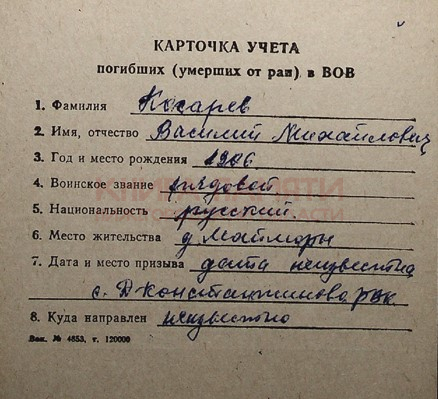 КАРТОЧКА УЧЕТА
погибших (умерших от ран) в ВОВ
1. Фамилия Косарев
2. Имя, отчество Василий Михайлович
3. Год и место рождения 1906
4. Воинское звание рядовой
5. Национальность русский
6. Место жительства д. Майморы
7. Дата и место призыва дата неизвестна
с. Д-Константиново РВК
8. Куда направлен неизвестно
Зак. № 4653, т. 120000